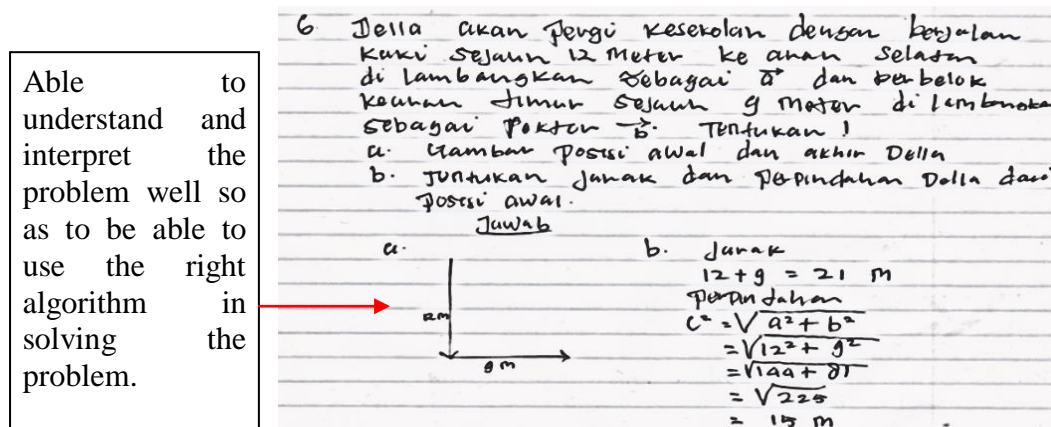 Able to
understand and
interpret the
problem well so
as to be able to
use the right
algorithm in
solving the
problem.
6 Della akan pergi kesekolah dengan berjalan
kaki sejauh 12 Meter ke arah selatan
di lambangkan sebagai a⃗ dan berbelok
kearah timur sejauh 9 meter di lambangka
sebagai Fektor b⃗. Tentukan !
a. Gambar posisi awal dan akhir Della
b. Tuntukan Jarak dan perpindahan Della dari
posisi awal.
Jawab
a.
12m
9 m
b. Jarak
12 + 9 = 21 m
Perpindahan
c² = √a² + b²
= √12² + 9²
= √144 + 81
= √225
= 15 m